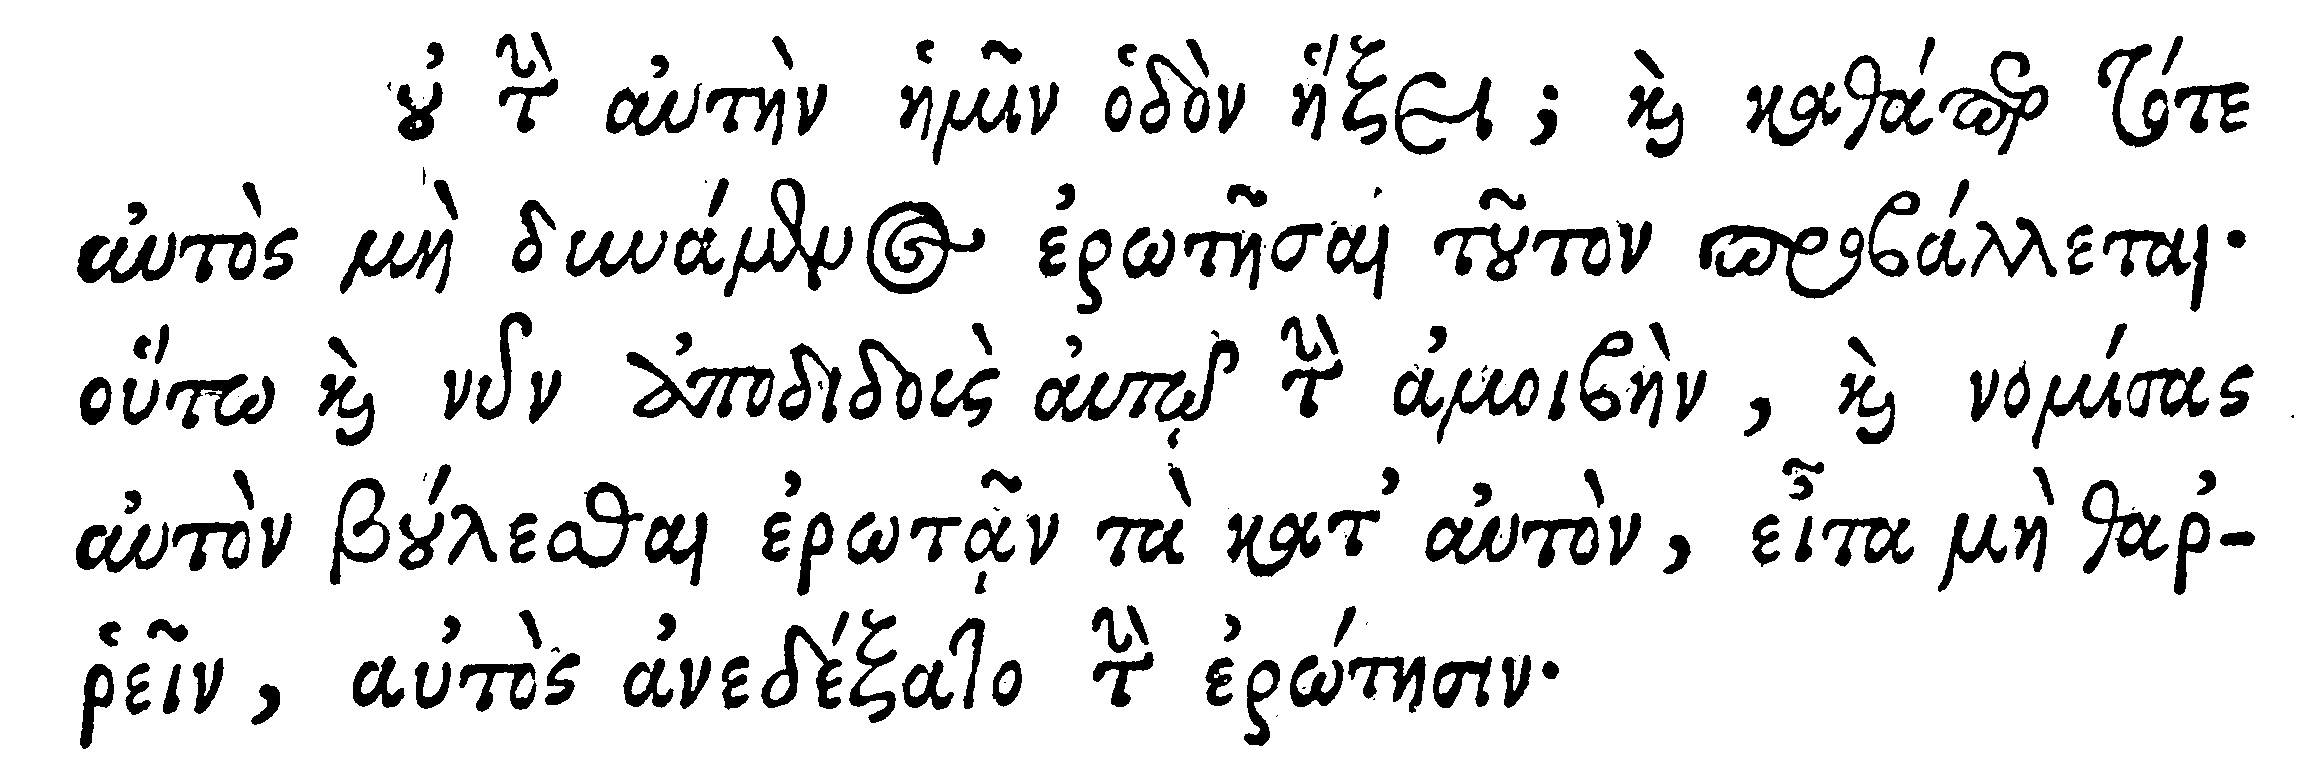 οὐ τὴν αὐτὴν ἡμῖν ὁδὸν ἥξει; καὶ καθάπερ τότε
αὐτὸς μὴ δυνάμενος ἐρωτῆσαι τοῦτον προβάλλεται·
οὕτω καὶ νῦν ἀποδιδοὺς αὐτῷ τὴν ἀμοιβὴν, καὶ νομίσας
αὐτὸν βούλεσθαι ἐρωτᾷν τὰ κατ' αὐτὸν, εἶτα μὴ θαῤ-
ῥεῖν, αὐτὸς ἀνεδέξατο τὴν ἐρώτησιν·